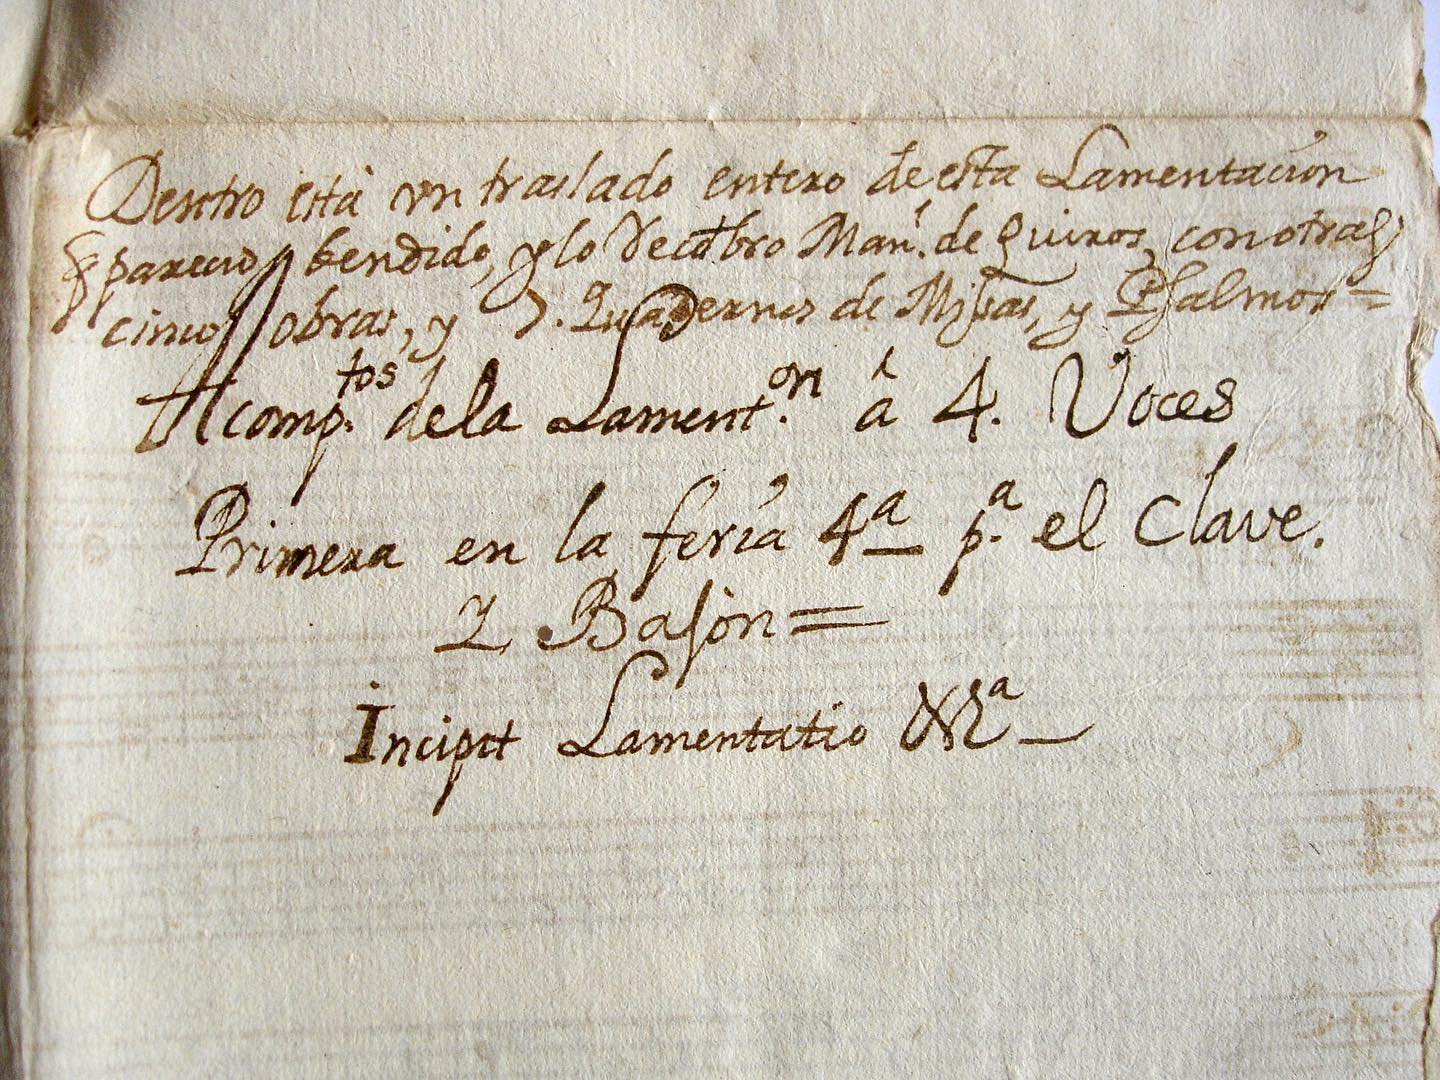 Dentro està vn traslado entero de esta Lamentaciòn
q parecio bendido, y lo Recobro Man.l de Quiros, con otras
cinco obras, y 7. Quadernos de Missas, y Psalmos =
Acomp.tos de la Lament.on à 4. Voces
Primera en la feria 4a p.a el Clave.
Y Bajòn =
Incipit Lamentatio